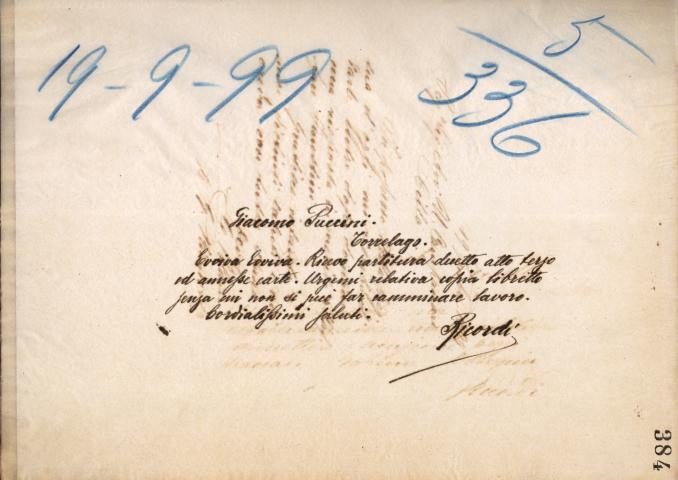 19-9-99
5
336
Giacomo Puccini.
Torrelago.
Evviva Evviva. Ricevo partitura duetto atto terzo
ed annesse carte. Urgemi relativa copia libretto
senza cui non si può far camminare lavoro.
Cordialissimi saluti.
Ricordi
384